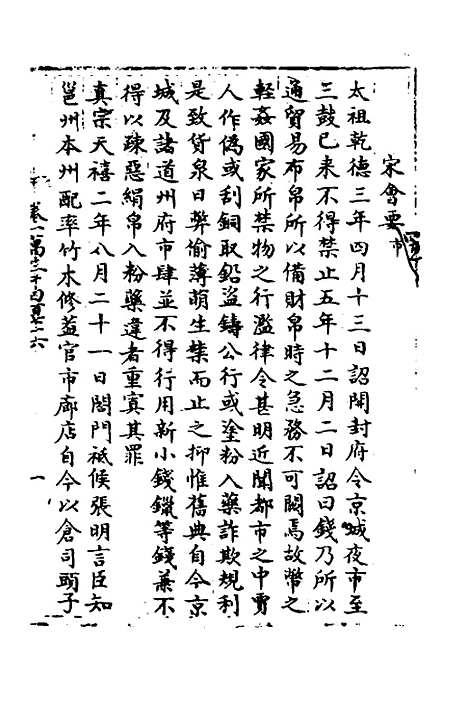 宋會要
市
太祖乾德三年四月十三日詔開封府令京城夜市至
三鼓已来不得禁止五年十二月二日詔曰錢乃所以
通貿易布帛所以備財帛時之急務不可闕焉故幣之
輕姦國家所禁物之行濫律令甚明近聞都市之中賈
人作偽或刮銅取鉛盜鑄公行或塗粉入藥詐欺規利
是致貨泉日弊偷薄萌生禁而止之抑惟舊典自今京
城及諸道州府市肆並不得行用新小錢鑞等錢兼不
得以疎惡絹帛入粉藥違者重寘其罪
真宗天禧二年八月二十一日閤門祗候張明言臣知
邕州本州配率竹木修蓋官市廊店自今以倉司頭子
卷一萬三千
一